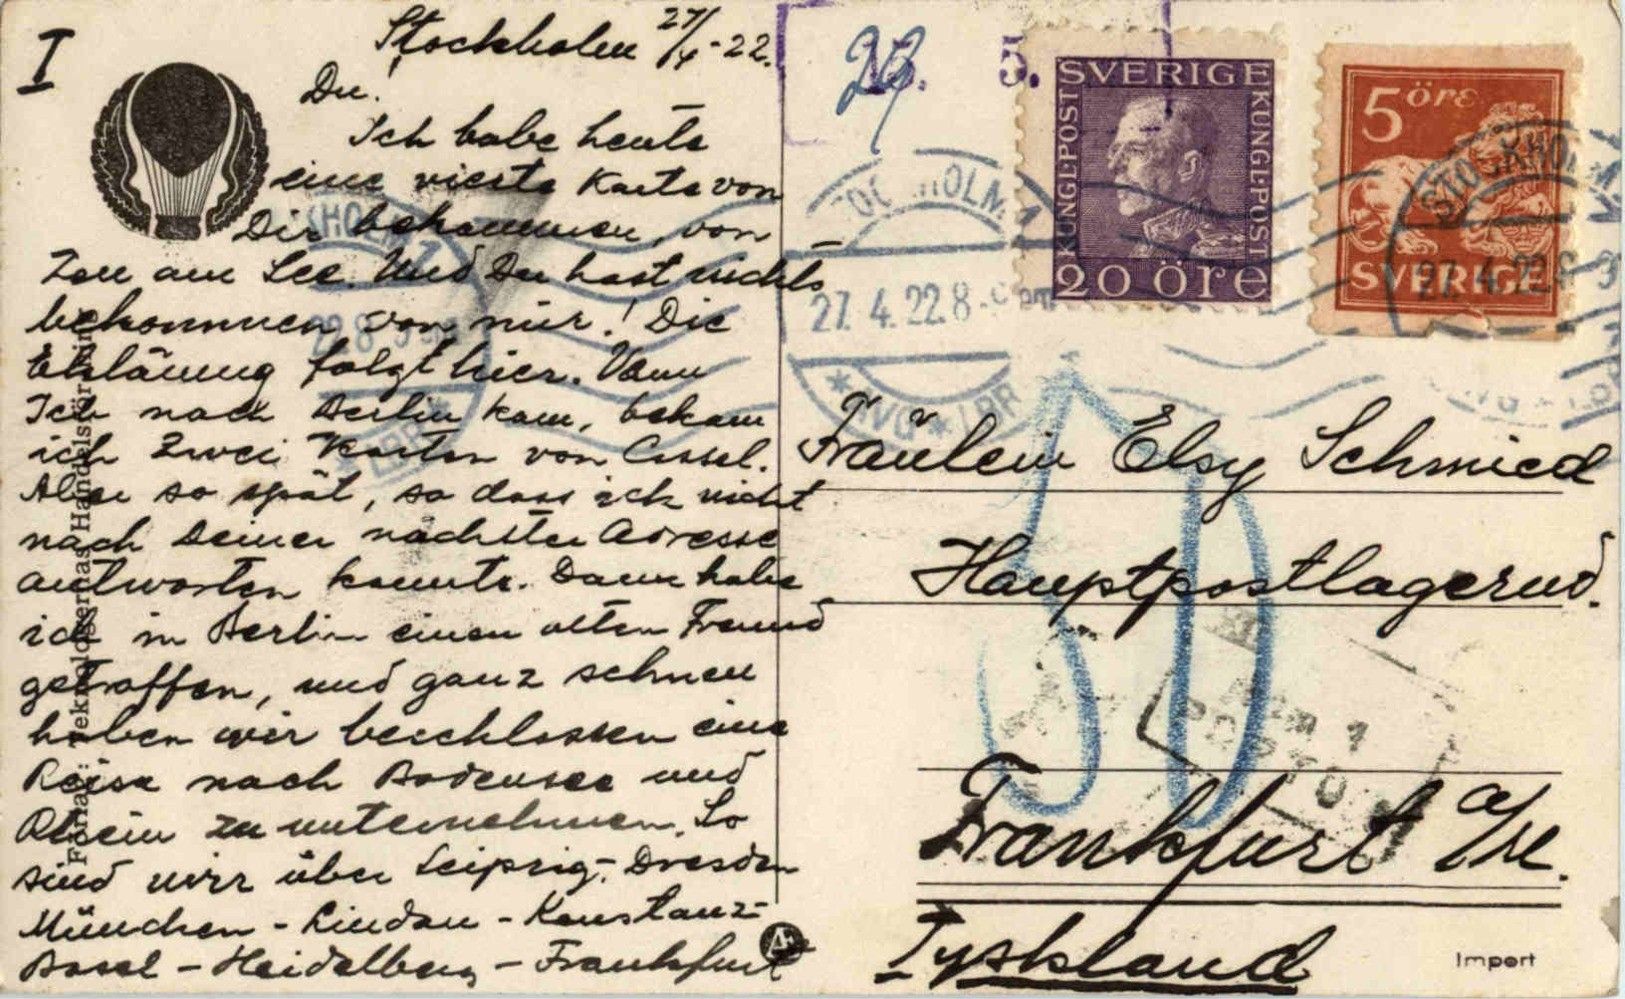 I
Stockholm 27/4-22.
Du.
Ich habe heute
eine vierte Karte von
Dir bekommen, von
Zell am See. Und Du hast nichts
bekommen von mir! Die
Erklärung folgt hier. Wann
Ich nach Berlin kam, bekam
ich zwei Karten von Cassel.
Aber so spät, so dass ich nicht
nach Deiner nächster Adresse
antworten konnte. Dann habe
ich in Berlin einen alten Freund
getroffen, und ganz schnell
haben wir beschlossen eine
Reise nach Bodensee und
Rhein zu unternehmen. So
sind wir über Leipzig-Dresden
München - Lindau - Konstanz-
Basel - Heidelberg - Frankfurt
5.
SVERIGE
KUNGL.POST
KUNGL.POST
20 öre
5 öre
SVERIGE
STOCKHOLM 1
27.4.22.8-9
*AVG*LBR
STOCKHOLM
27.4.22.8
Fräulein Elsy Schmied
Hauptpostlagernd.
Frankfurt a/M.
Tyskland
Import